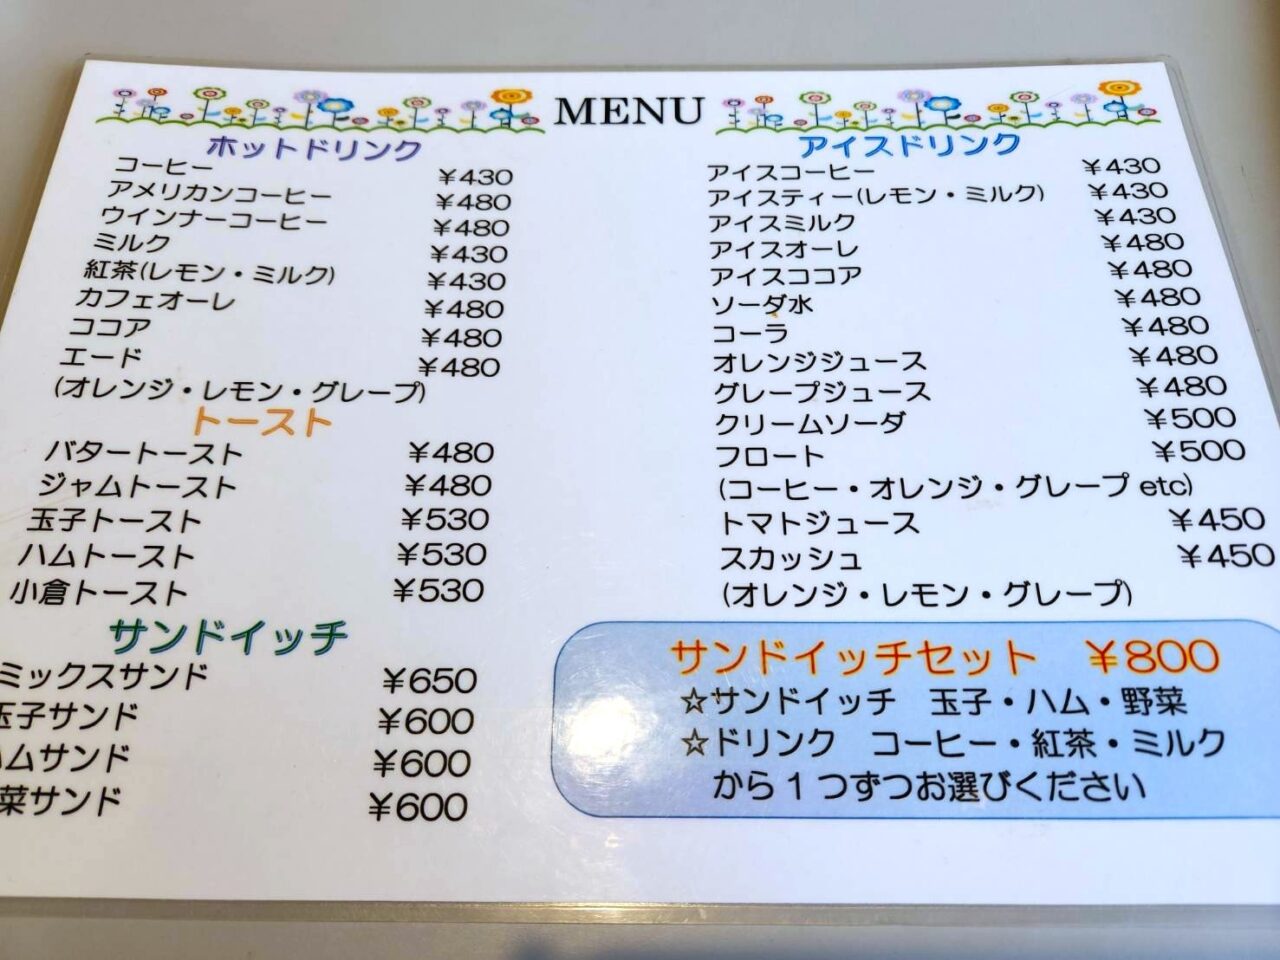 MENU
ホットドリンク
コーヒー ¥430
アメリカンコーヒー ¥480
ウインナーコーヒー ¥480
ミルク ¥430
紅茶(レモン・ミルク) ¥430
カフェオーレ ¥480
ココア ¥480
エード ¥480
(オレンジ・レモン・グレープ)
トースト
バタートースト ¥480
ジャムトースト ¥480
玉子トースト ¥530
ハムトースト ¥530
小倉トースト ¥530
サンドイッチ
ミックスサンド ¥650
玉子サンド ¥600
ハムサンド ¥600
菜サンド ¥600
アイスドリンク
アイスコーヒー ¥430
アイスティー(レモン・ミルク) ¥430
アイスミルク ¥430
アイスオーレ ¥480
アイスココア ¥480
ソーダ水 ¥480
コーラ ¥480
オレンジジュース ¥480
グレープジュース ¥480
クリームソーダ ¥500
フロート ¥500
(コーヒー・オレンジ・グレープ etc)
トマトジュース ¥450
スカッシュ ¥450
(オレンジ・レモン・グレープ)
サンドイッチセット ¥800
☆サンドイッチ 玉子・ハム・野菜
☆ドリンク コーヒー・紅茶・ミルク
から1つずつお選びください